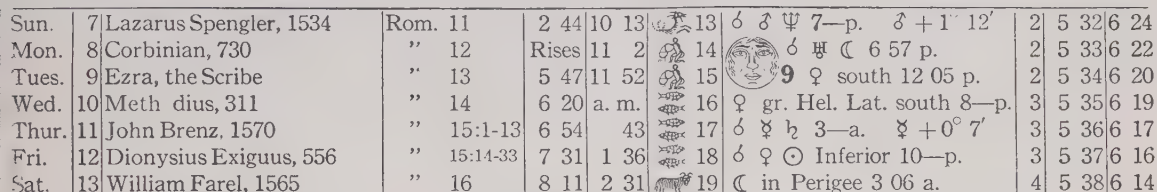 Sun. 7 Lazarus Spengler, 1534 Rom. 11 2 44 10 13 13 ☌ ♂ ♆ 7—p. ♂ + 1° 12′ 2 5 32 6 24
Mon. 8 Corbinian, 730 ” 12 Rises 11 2 14 ☌ ♅ ☾ 6 57 p. 2 5 33 6 22
Tues. 9 Ezra, the Scribe ” 13 5 47 11 52 15 9 ♀ south 12 05 p. 2 5 34 6 20
Wed. 10 Meth dius, 311 ” 14 6 20 a. m. 16 ♀ gr. Hel. Lat. south 8—p. 3 5 35 6 19
Thur. 11 John Brenz, 1570 ” 15:1-13 6 54 43 17 ☌ ☿ ♄ 3—a. ☿ + 0° 7′ 3 5 36 6 17
Fri. 12 Dionysius Exiguus, 556 ” 15:14-33 7 31 1 36 18 ☌ ♀ ☉ Inferior 10—p. 3 5 37 6 16
Sat. 13 William Farel, 1565 ” 16 8 11 2 31 19 ☾ in Perigee 3 06 a. 4 5 38 6 14